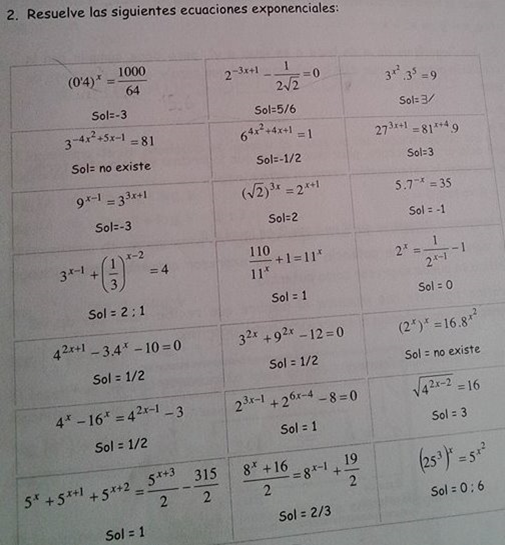 2. Resuelve las siguientes ecuaciones exponenciales:
(0'4)^x = 1000/64
Sol=-3
2^(-3x+1) - 1/(2√2) = 0
Sol=5/6
3^(x^2) . 3^5 = 9
3^(-4x^2+5x-1) = 81
Sol= no existe
6^(4x^2+4x+1) = 1
Sol=-1/2
27^(3x+1) = 81^(x+4) . 9
Sol=3
9^(x-1) = 3^(3x+1)
Sol=-3
(√2)^(3x) = 2^(x+1)
Sol=2
5.7^(-x) = 35
Sol = -1
3^(x-1) + (1/3)^(x-2) = 4
Sol = 2 ; 1
110/11^x + 1 = 11^x
Sol = 1
2^x = 1/2^(x-1) - 1
Sol = 0
4^(2x+1) - 3.4^x - 10 = 0
Sol = 1/2
3^(2x) + 9^(2x) - 12 = 0
Sol = 1/2
(2^x)^x = 16.8^(x^2)
Sol = no existe
4^x - 16^x = 4^(2x-1) - 3
Sol = 1/2
2^(3x-1) + 2^(6x-4) - 8 = 0
Sol = 1
√(4^(2x-2)) = 16
Sol = 3
5^x + 5^(x+1) + 5^(x+2) = 5^(x+3)/2 - 315/2
Sol = 1
(8^x + 16)/2 = 8^(x-1) + 19/2
Sol = 2/3
(25^3)^x = 5^(x^2)
Sol = 0 ; 6